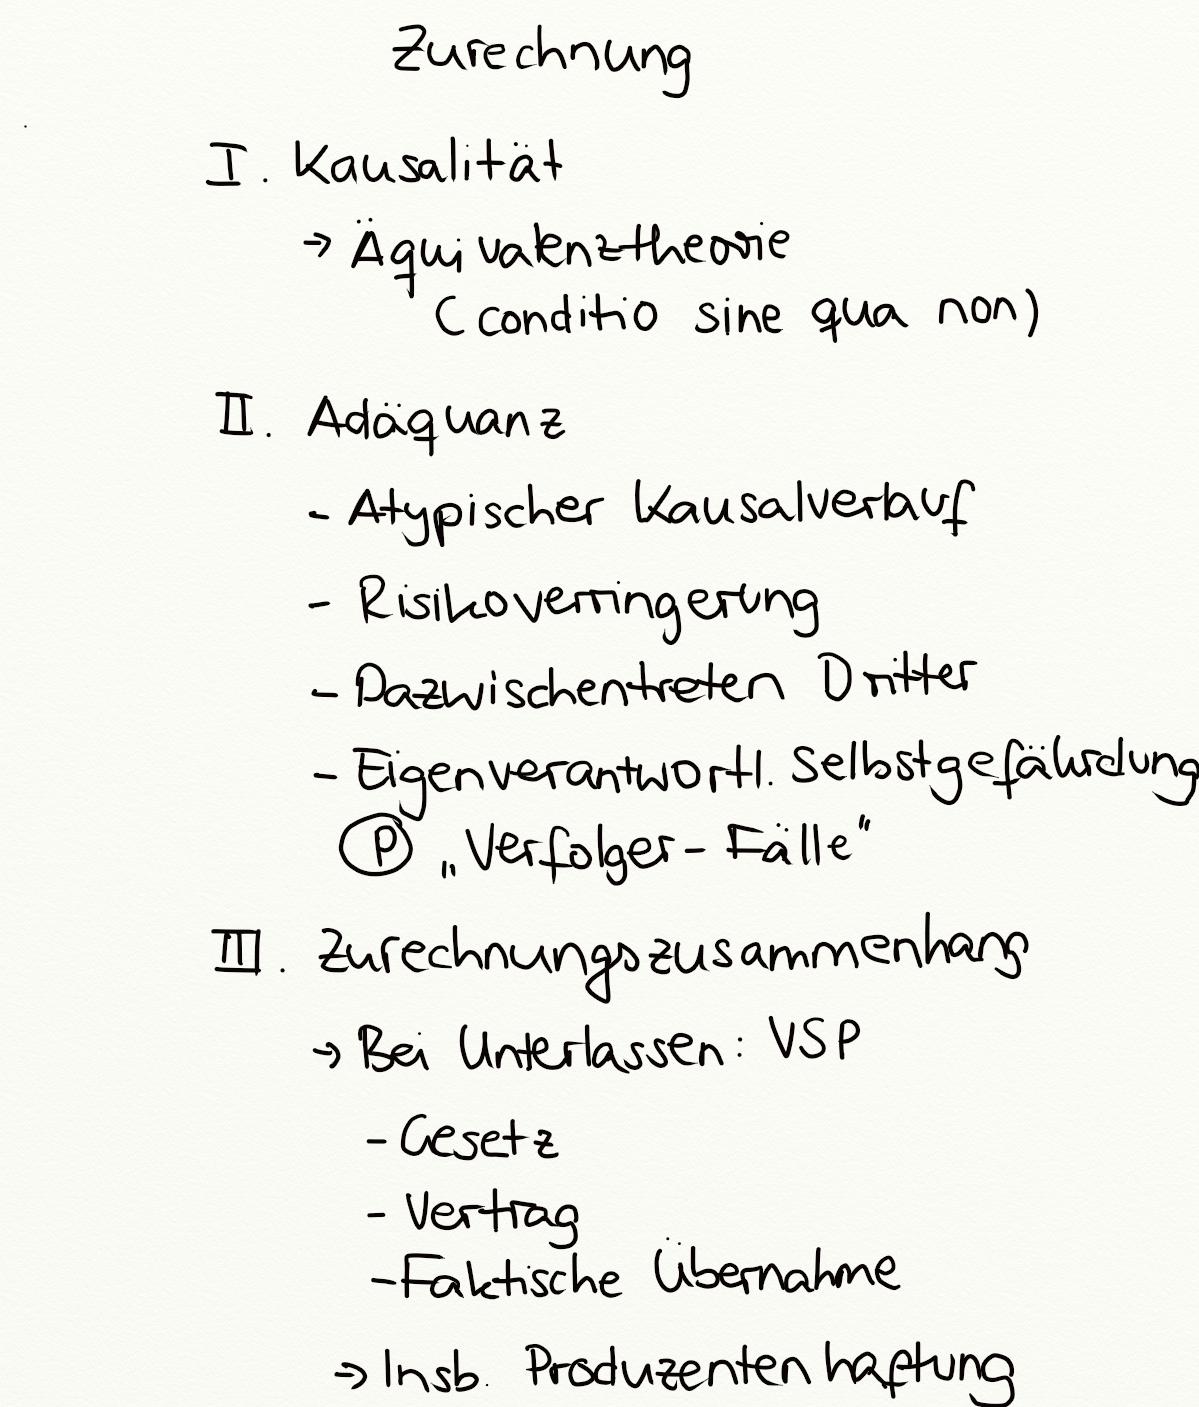 Zurechnung
I. Kausalität
→ Äquivalenztheorie
(conditio sine qua non)
II. Adäquanz
- Atypischer Kausalverlauf
- Risikoverringerung
- Dazwischentreten Dritter
- Eigenverantwortl. Selbstgefährdung
Ⓟ „Verfolger-Fälle“
III. Zurechnungszusammenhang
→ Bei Unterlassen: VSP
- Gesetz
- Vertrag
- Faktische Übernahme
→ Insb. Produzentenhaftung